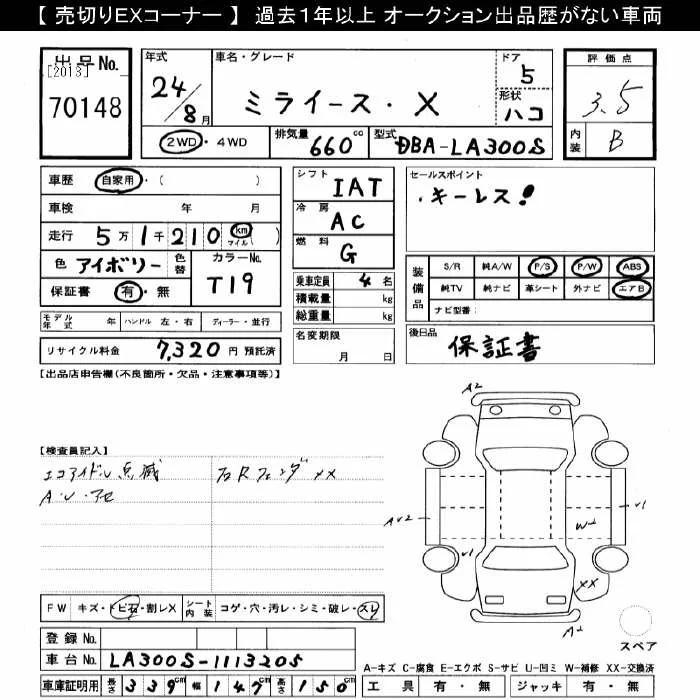 【 売切りEXコーナー 】 過去1年以上 オークション出品歴がない車両
出品No.
[2013]
70148
年式
24/8月
車名・グレード
ミライース・X
ドア
5
形状
ハコ
評価点
3.5
内装
B
2WD・4WD
排気量
660cc
型式
DBA-LA300S
車歴
自家用・( )
車検 年 月
走行 5万1千210 km マイル( )
色 アイボリー
色替
カラーNo.
T19
保証書 有・無
シフト
IAT
冷房
AC
燃料
G
乗車定員 4名
積載量 kg
総重量 kg
セールスポイント
・キーレス!
装備品
S/R 純A/W P/S P/W ABS
純TV 純ナビ 革シート 外ナビ エアB
ナビ型番:
モデル年式 年 ハンドル 左・右 ディーラー・並行
名変期限
月 日
後日品
保証書
リサイクル料金 7,320円 預託済
【出品店申告欄(不良箇所・欠品・注意事項等)】
【検査員記入】
エコアイドル点滅
右Rフェンダ XX
A・U・アセ
A2
AU2
U1
U1
W2
XX
A2
スペア
FW キズ・トビ石・割レX
シート内装
コゲ・穴・汚レ・シミ・破レ・スレ
登録No.
車台No. LA300S-1113205
A-キズ C-腐食 E-エクボ S-サビ U-凹ミ W-補修 XX-交換済
車庫証明用 長さ 339cm 幅 147cm 高さ 150cm
工具 有・無 ジャッキ 有・無